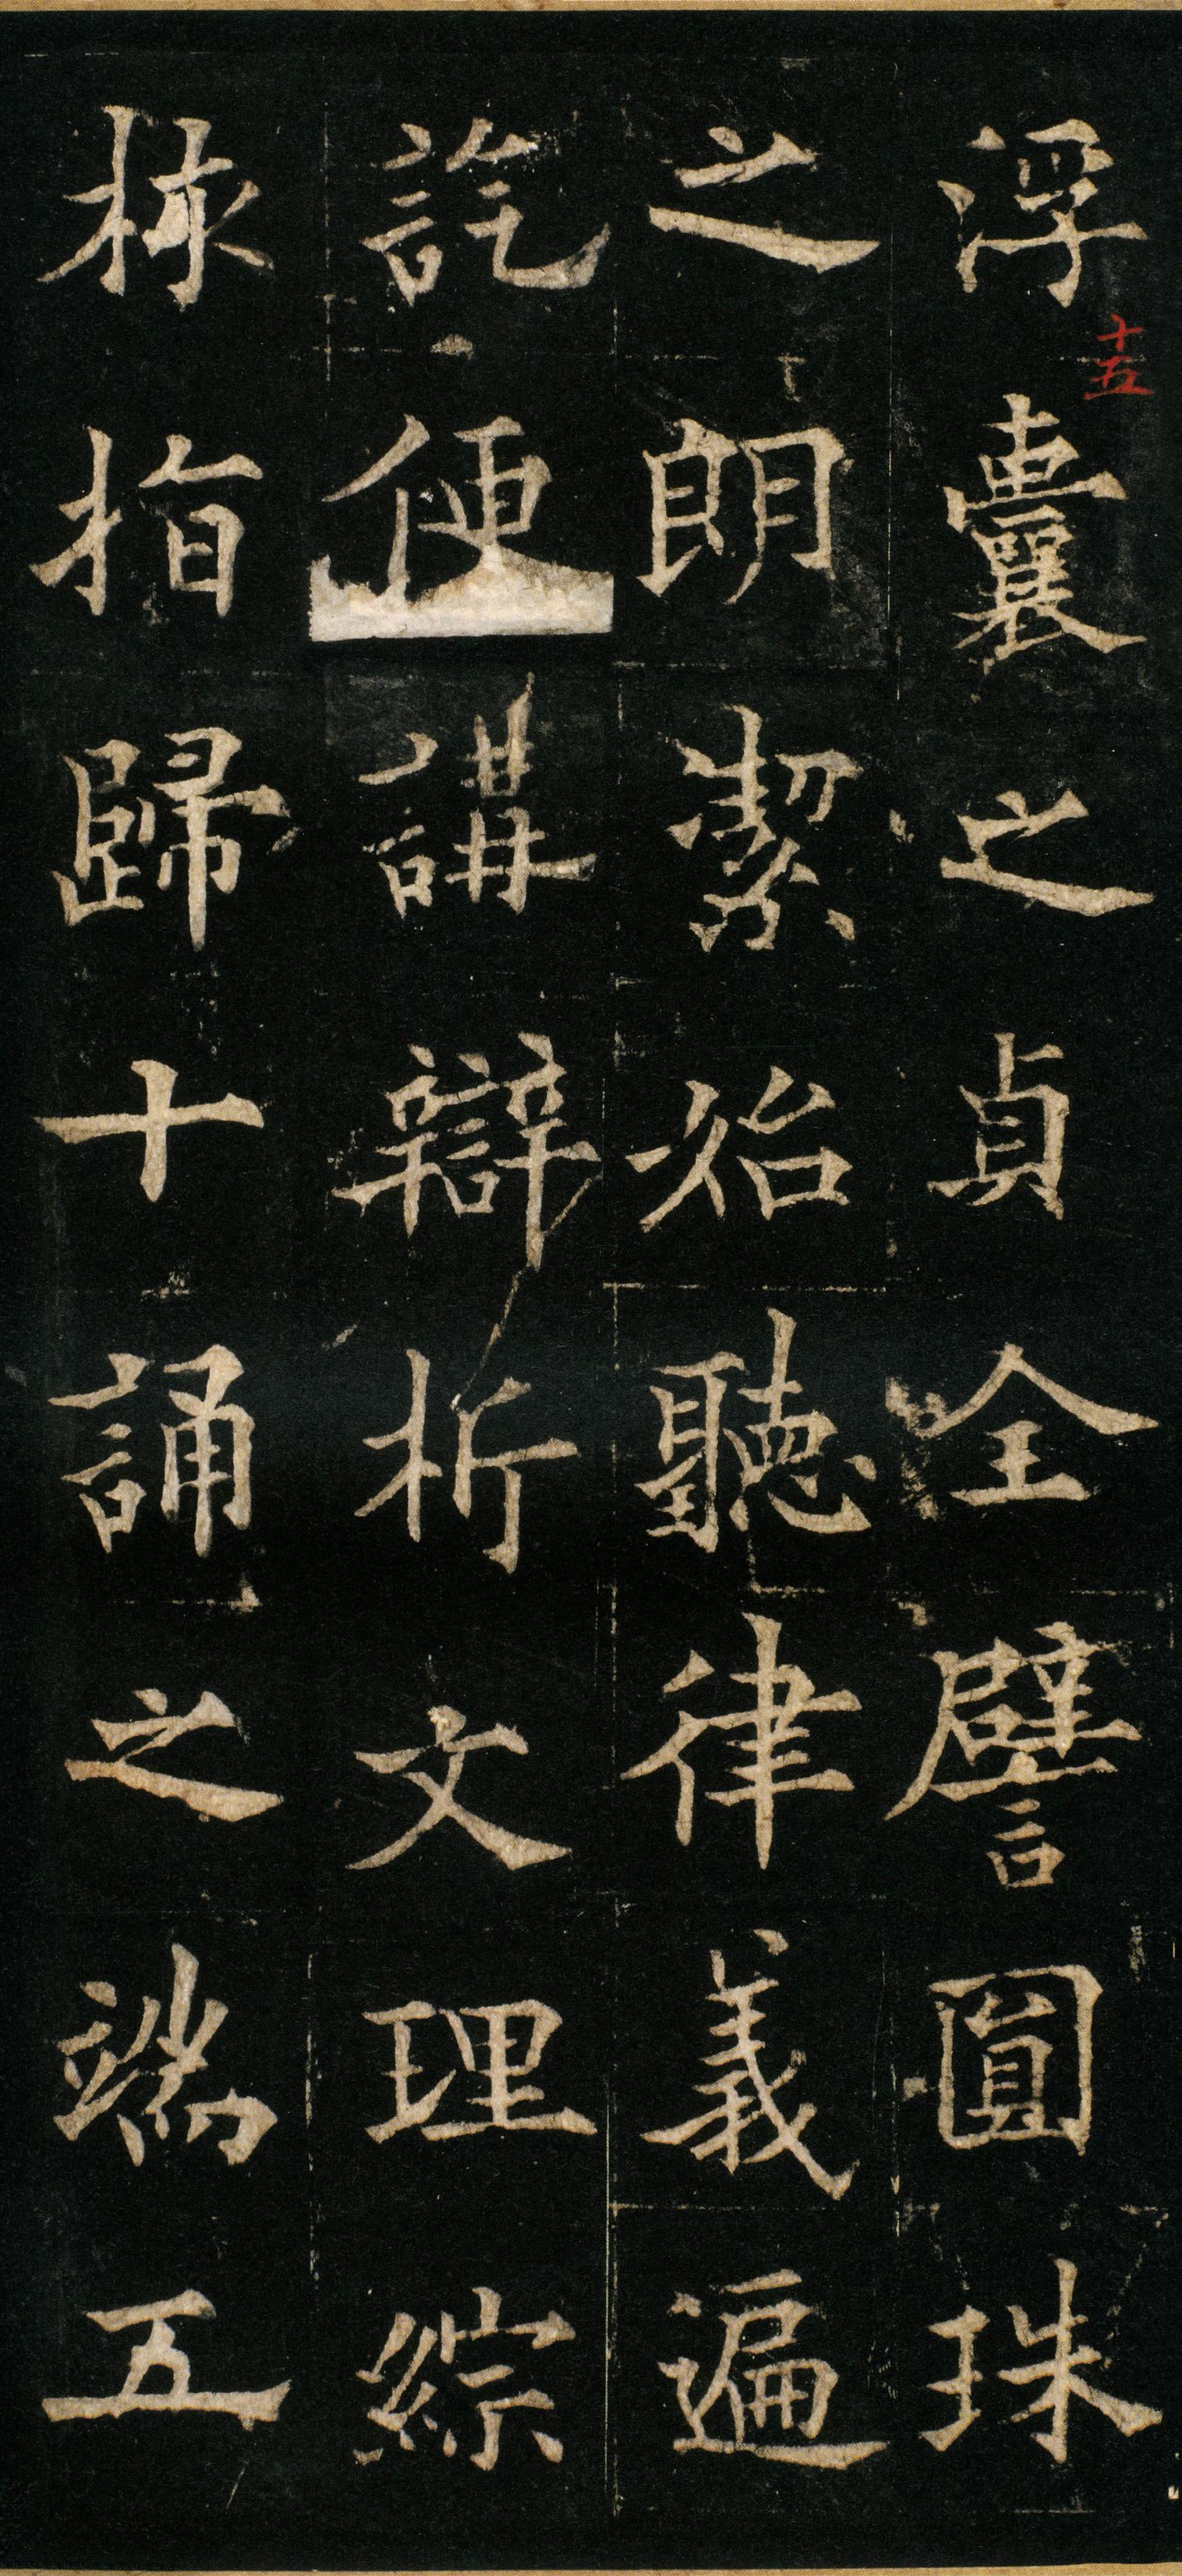 浮囊之貞全譬圓珠
十五
之朗潔始聽律義遍
訖便講辯析文理綜
梂指歸十誦之端五